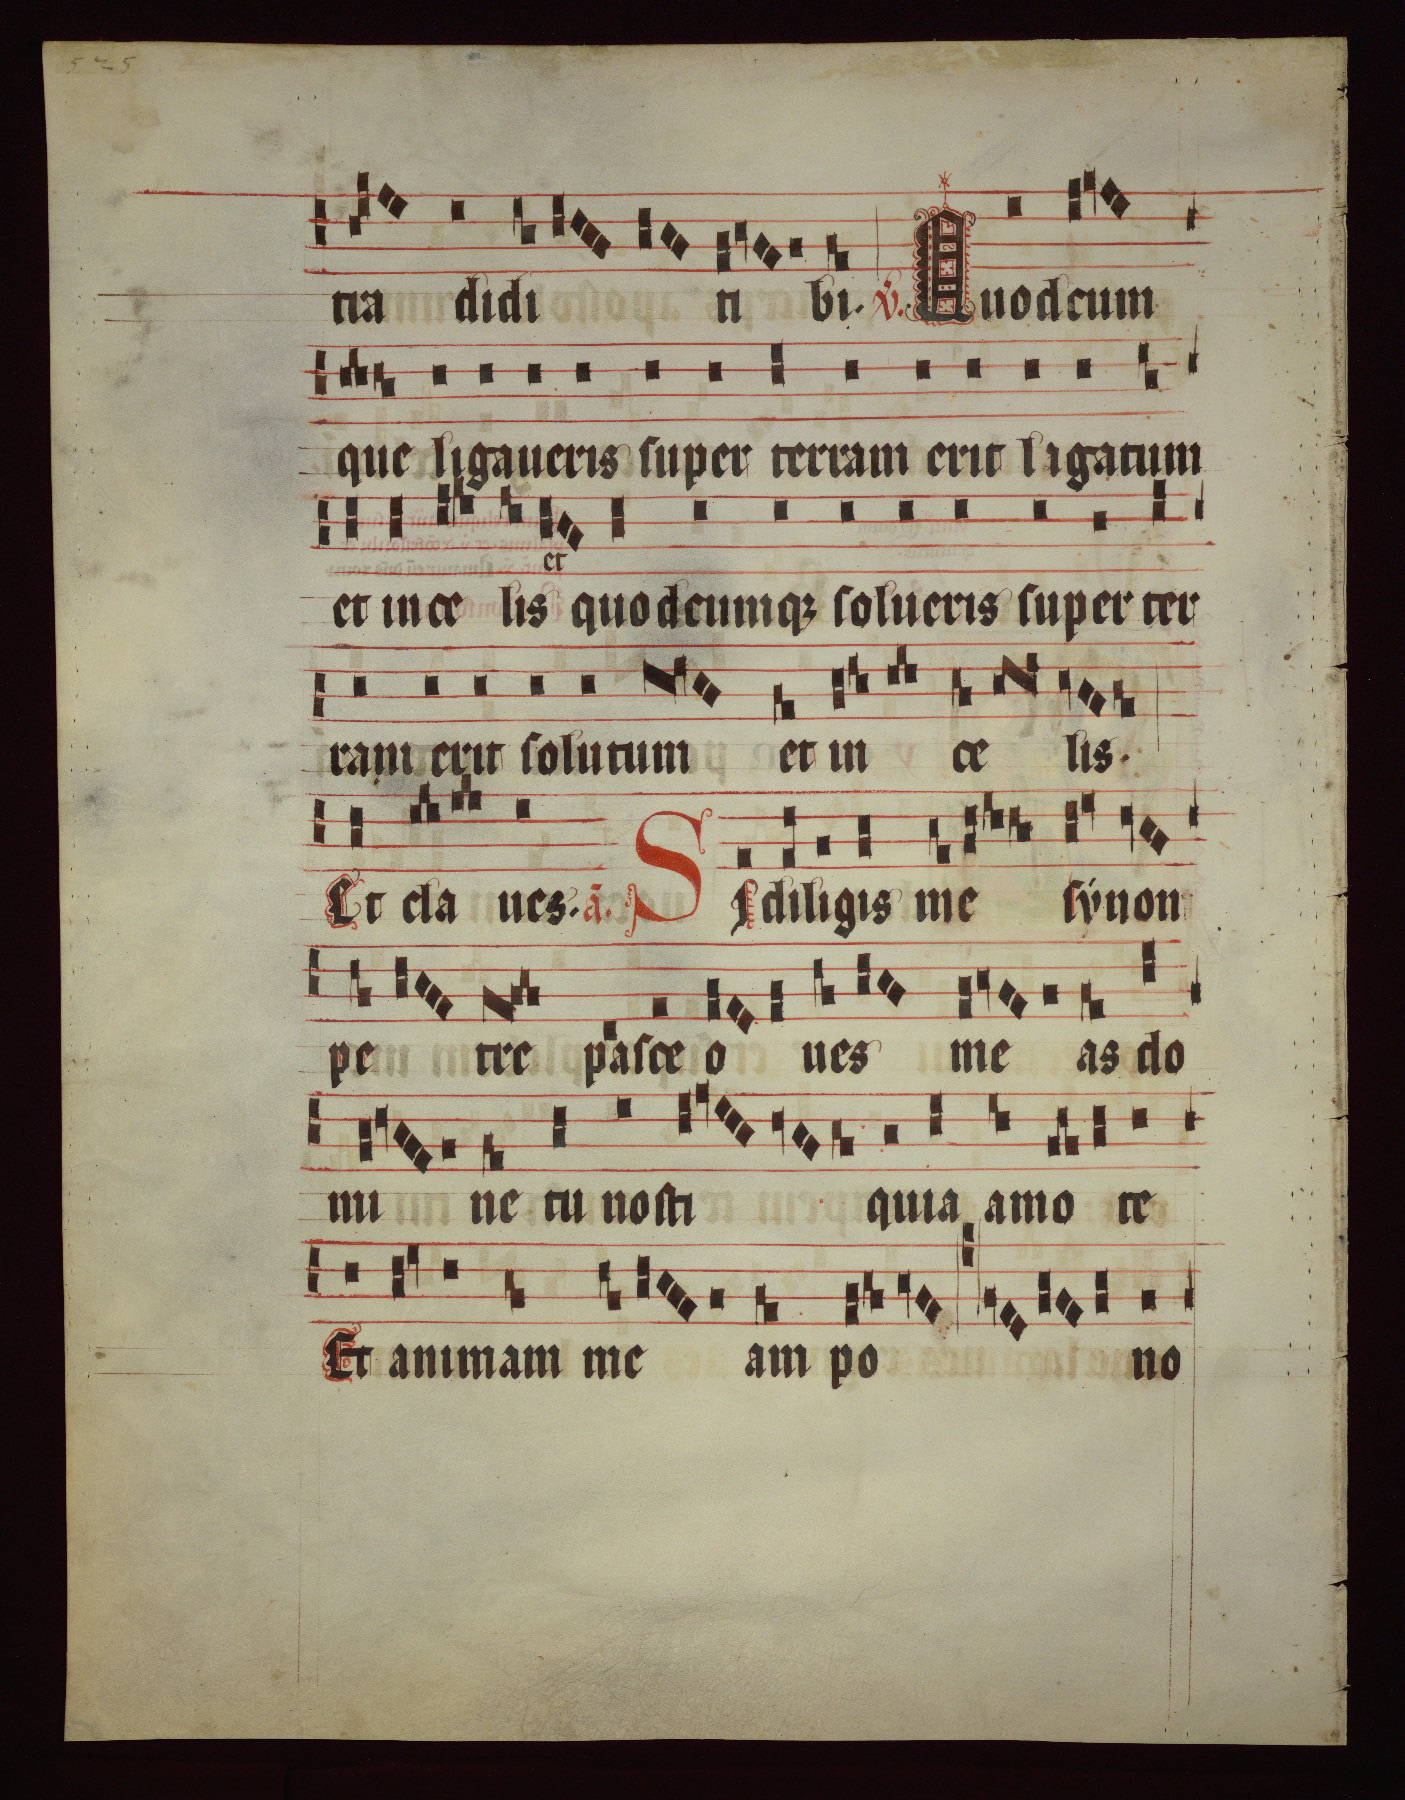 525
tra didi ti bi. ℣. Quodcum
que ligaueris super terram erit ligatum
et
et in ce lis quodcumqꝫ solueris super ter
ram erit solutum et in ce lis.
Et cla ues. ã. Si diligis me sẏmon
pe tre pasce o ues me as do
mi ne tu nosti quia amo te
Et animam me am po no